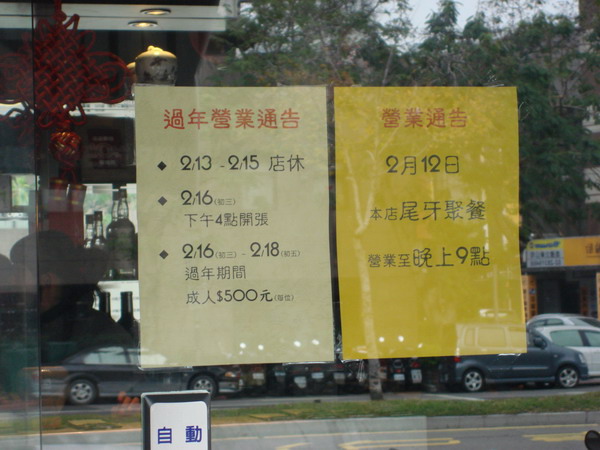 過年營業通告
◆ 2/13 - 2/15 店休
◆ 2/16(初三)
下午4點開張
◆ 2/16(初三) - 2/18(初五)
過年期間
成人$500元(每位)
營業通告
2月12日
本店尾牙聚餐
營業至晚上9點
自動